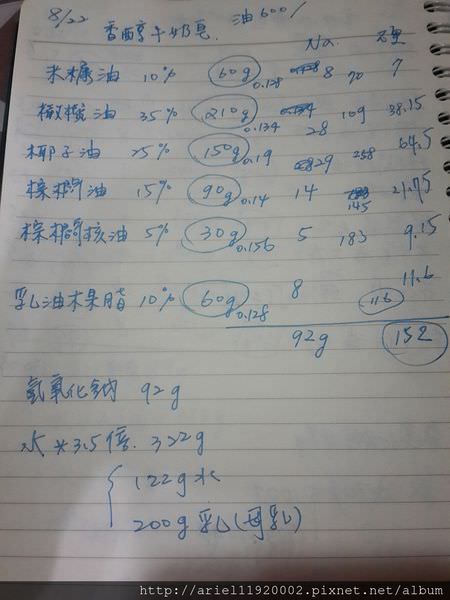 8/22 香醇牛奶皂 油600/
Na. 硬
米糠油 10% 60g 0.128 8 70 7
橄欖油 35% 210g 0.134 28 109 38.15
椰子油 25% 150g 0.19 29 258 64.5
棕櫚油 15% 90g 0.14 14 145 21.75
棕櫚核油 5% 30g 0.156 5 183 9.15
乳油木果脂 10% 60g 0.128 8 116 11.6
92g 152
氫氧化鈉 92g
水×3.5倍. 322g
122g水
200g乳(母乳)
http://ariel11920002.pixnet.net/album